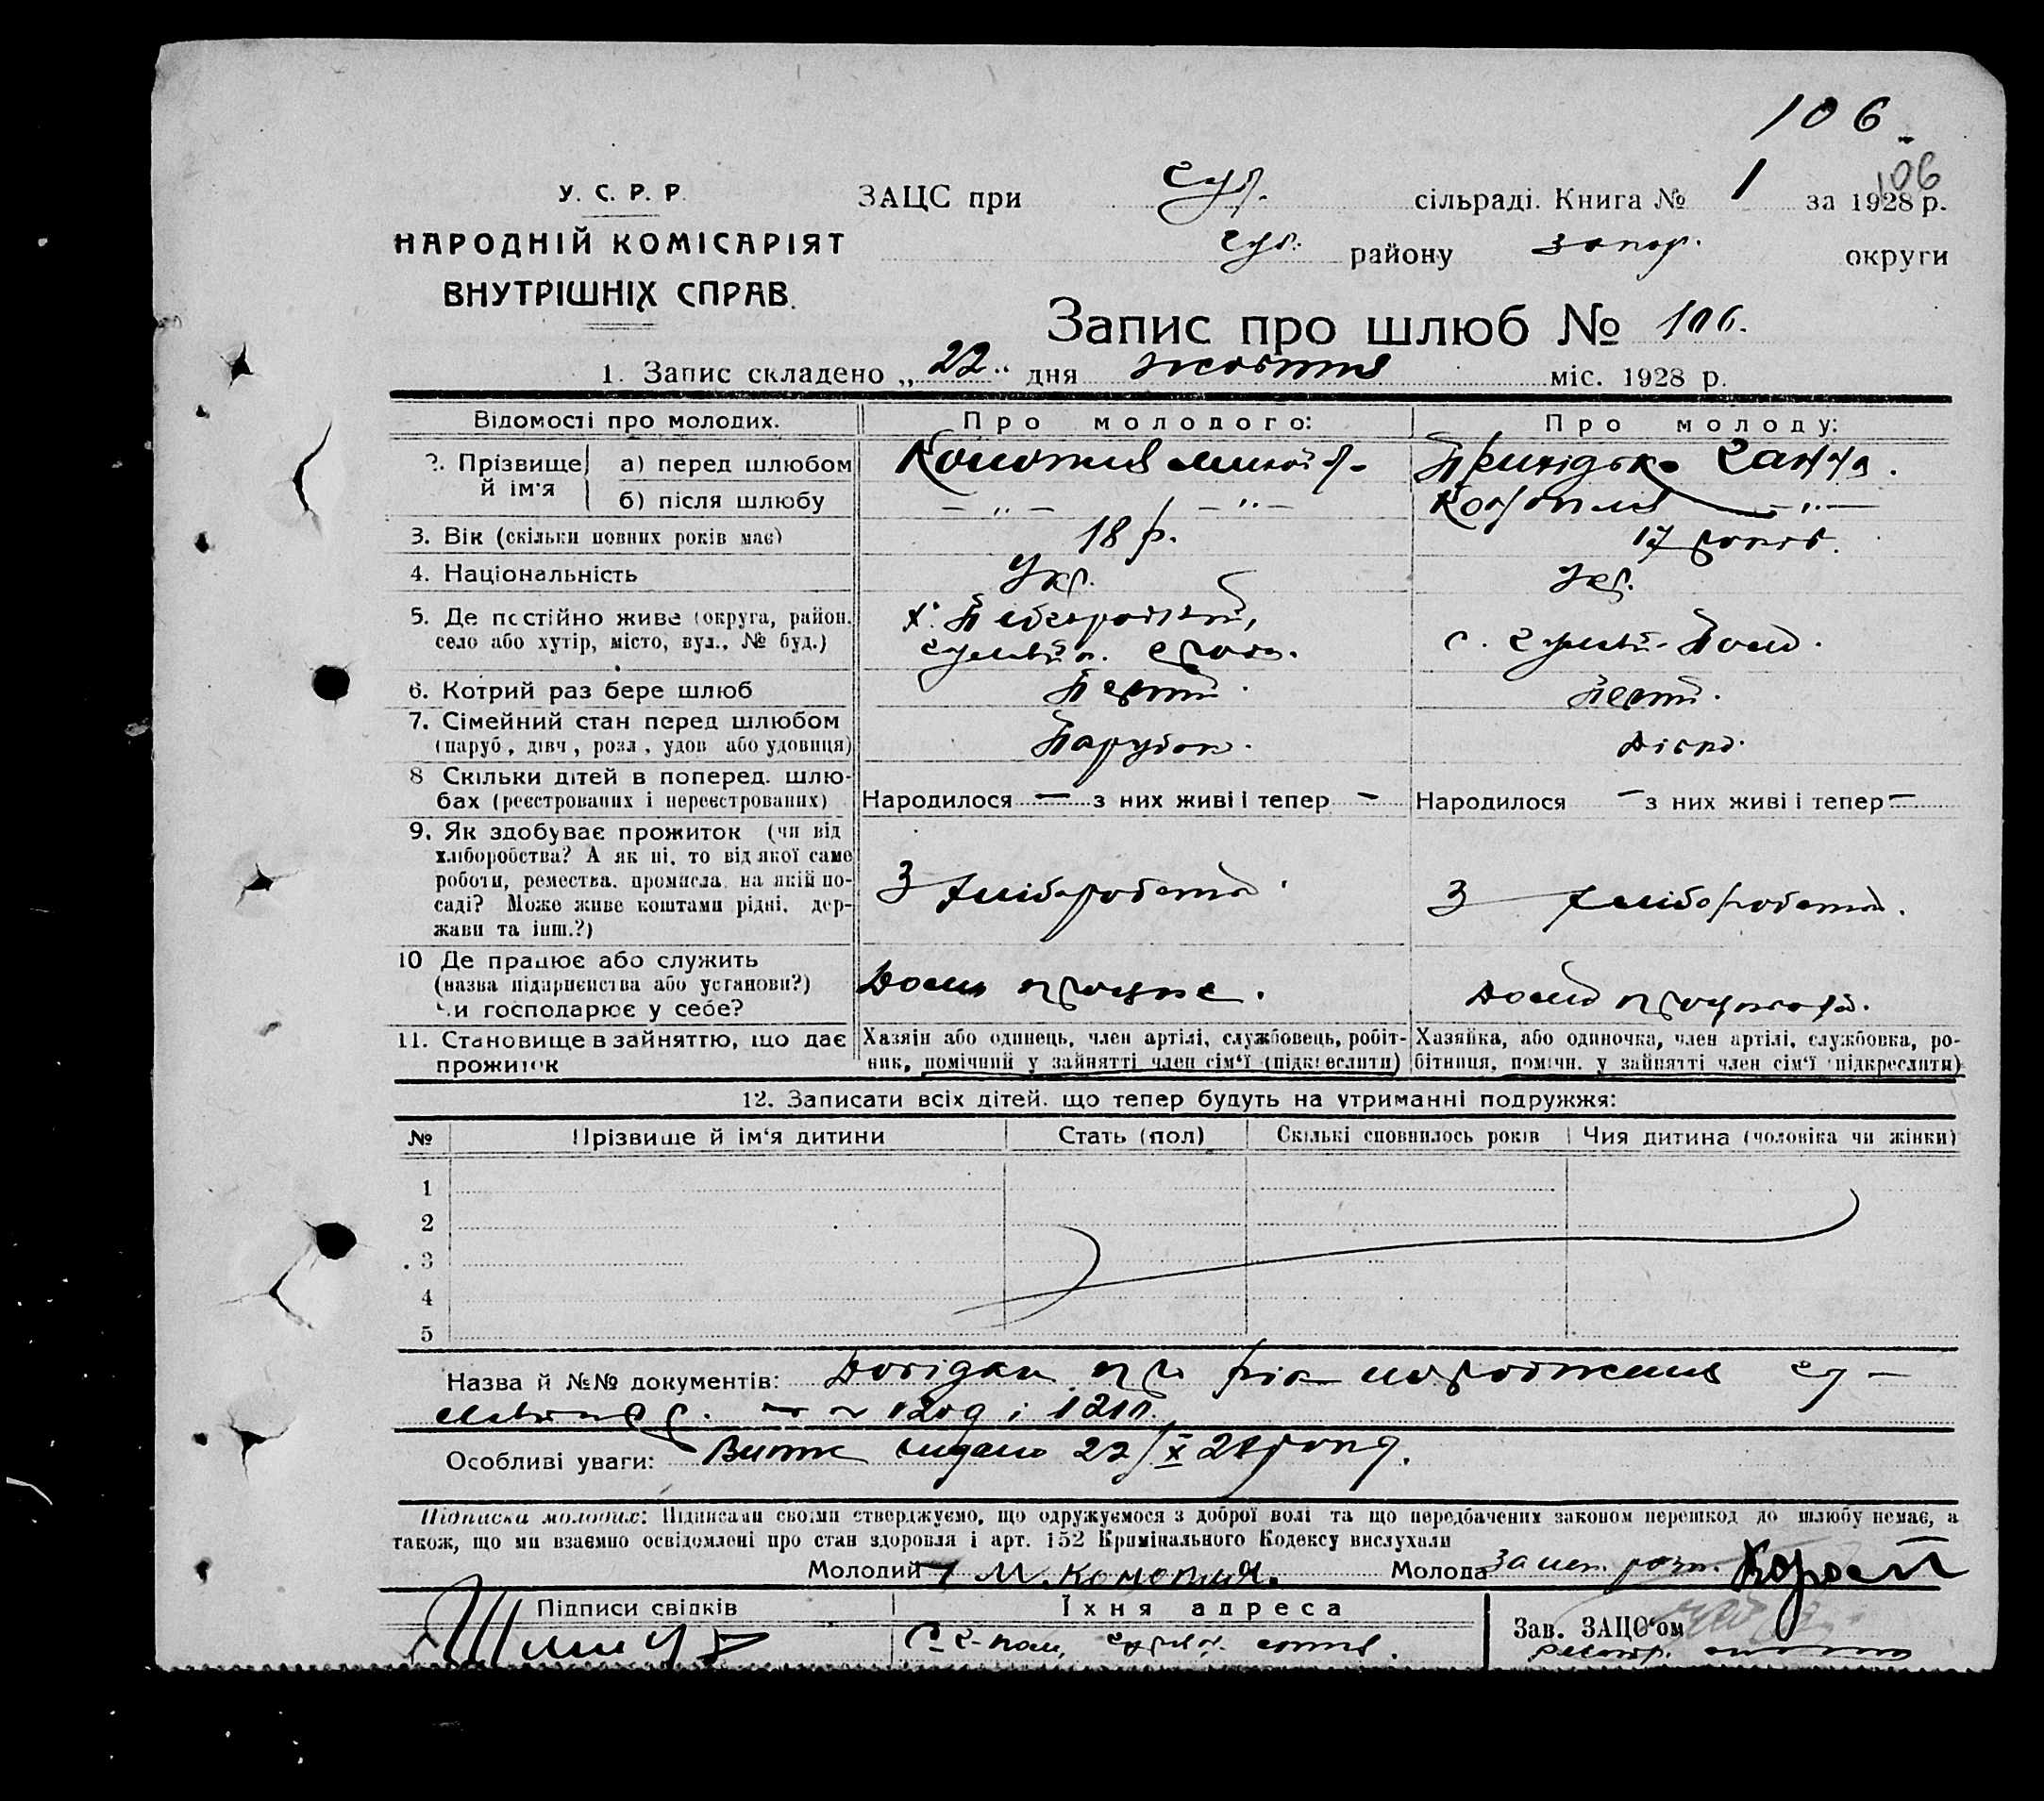 106
106
У. С. Р. Р.
НАРОДНІЙ КОМІСАРІЯТ
ВНУТРІШНІХ СПРАВ.
ЗАЦС при Гул. сільраді. Книга № 1 за 1928 р.
Гул. району Запор. округи
Запис про шлюб № 106.
1. Запис складено „22" дня жовтня міс. 1928 р.
Відомості про молодих. Про молодого: Про молоду:
2. Прізвище й ім'я
а) перед шлюбом Ганна.
б) після шлюбу — „ — — „ — — „ —
3. Вік (скільки повних років має) 18 р. 17 років.
4. Національність Укр. Укр.
5. Де постійно живе (округа, район,
село або хутір, місто, вул., № буд.) х. с. Гуляй-Поле.
6. Котрий раз бере шлюб Перший. Перший.
7. Сімейний стан перед шлюбом
(паруб., дівч., розл., удов або удовиця) Парубок. Дівка.
8 Скільки дітей в поперед. шлю-
бах (реєстрованих і нереєстрованих) Народилося — з них живі і тепер — Народилося — з них живі і тепер —
9. Як здобуває прожиток (чи від
хліборобства? А як ні, то від якої саме
роботи, ремества, промисла, на якій по-
саді? Може живе коштами рідні, дер-
жави та інш.?)
З хліборобства. З хліборобства.
10 Де працює або служить
(назва підприємства або установи?)
чи господарює у себе?
Дома працює. Дома
11. Становище в зайняттю, що дає
прожиток
Хазяїн або одинець, член артілі, службовець, робіт-
ник, помічний у зайнятті член сім'ї (підкреслити)
Хазяйка, або одиночка, член артілі, службовка, ро-
бітниця, помічн. у зайнятті член сім'ї (підкреслити)
12. Записати всіх дітей, що тепер будуть на утриманні подружжя:
№ Прізвище й ім'я дитини Стать (пол) Скількі сповнилось років Чия дитина (чоловіка чи жінки)
1
2
3
4
5
Назва й №№ документів: Довідки про рік народження
Особливі уваги: Витяг видано 22/X 28 року.
Підписка молодих: Підписами своїми стверджуємо, що одружуємося з доброї волі та що передбачених законом перешкод до шлюбу немає, а
також, що ми взаємно освідомлені про стан здоровля і арт. 152 Кримінального Кодексу вислухали
Молодий М. Конопля. Молода За неп. розп.
Підписи свідків Їхня адреса
Зав. ЗАЦС'ом